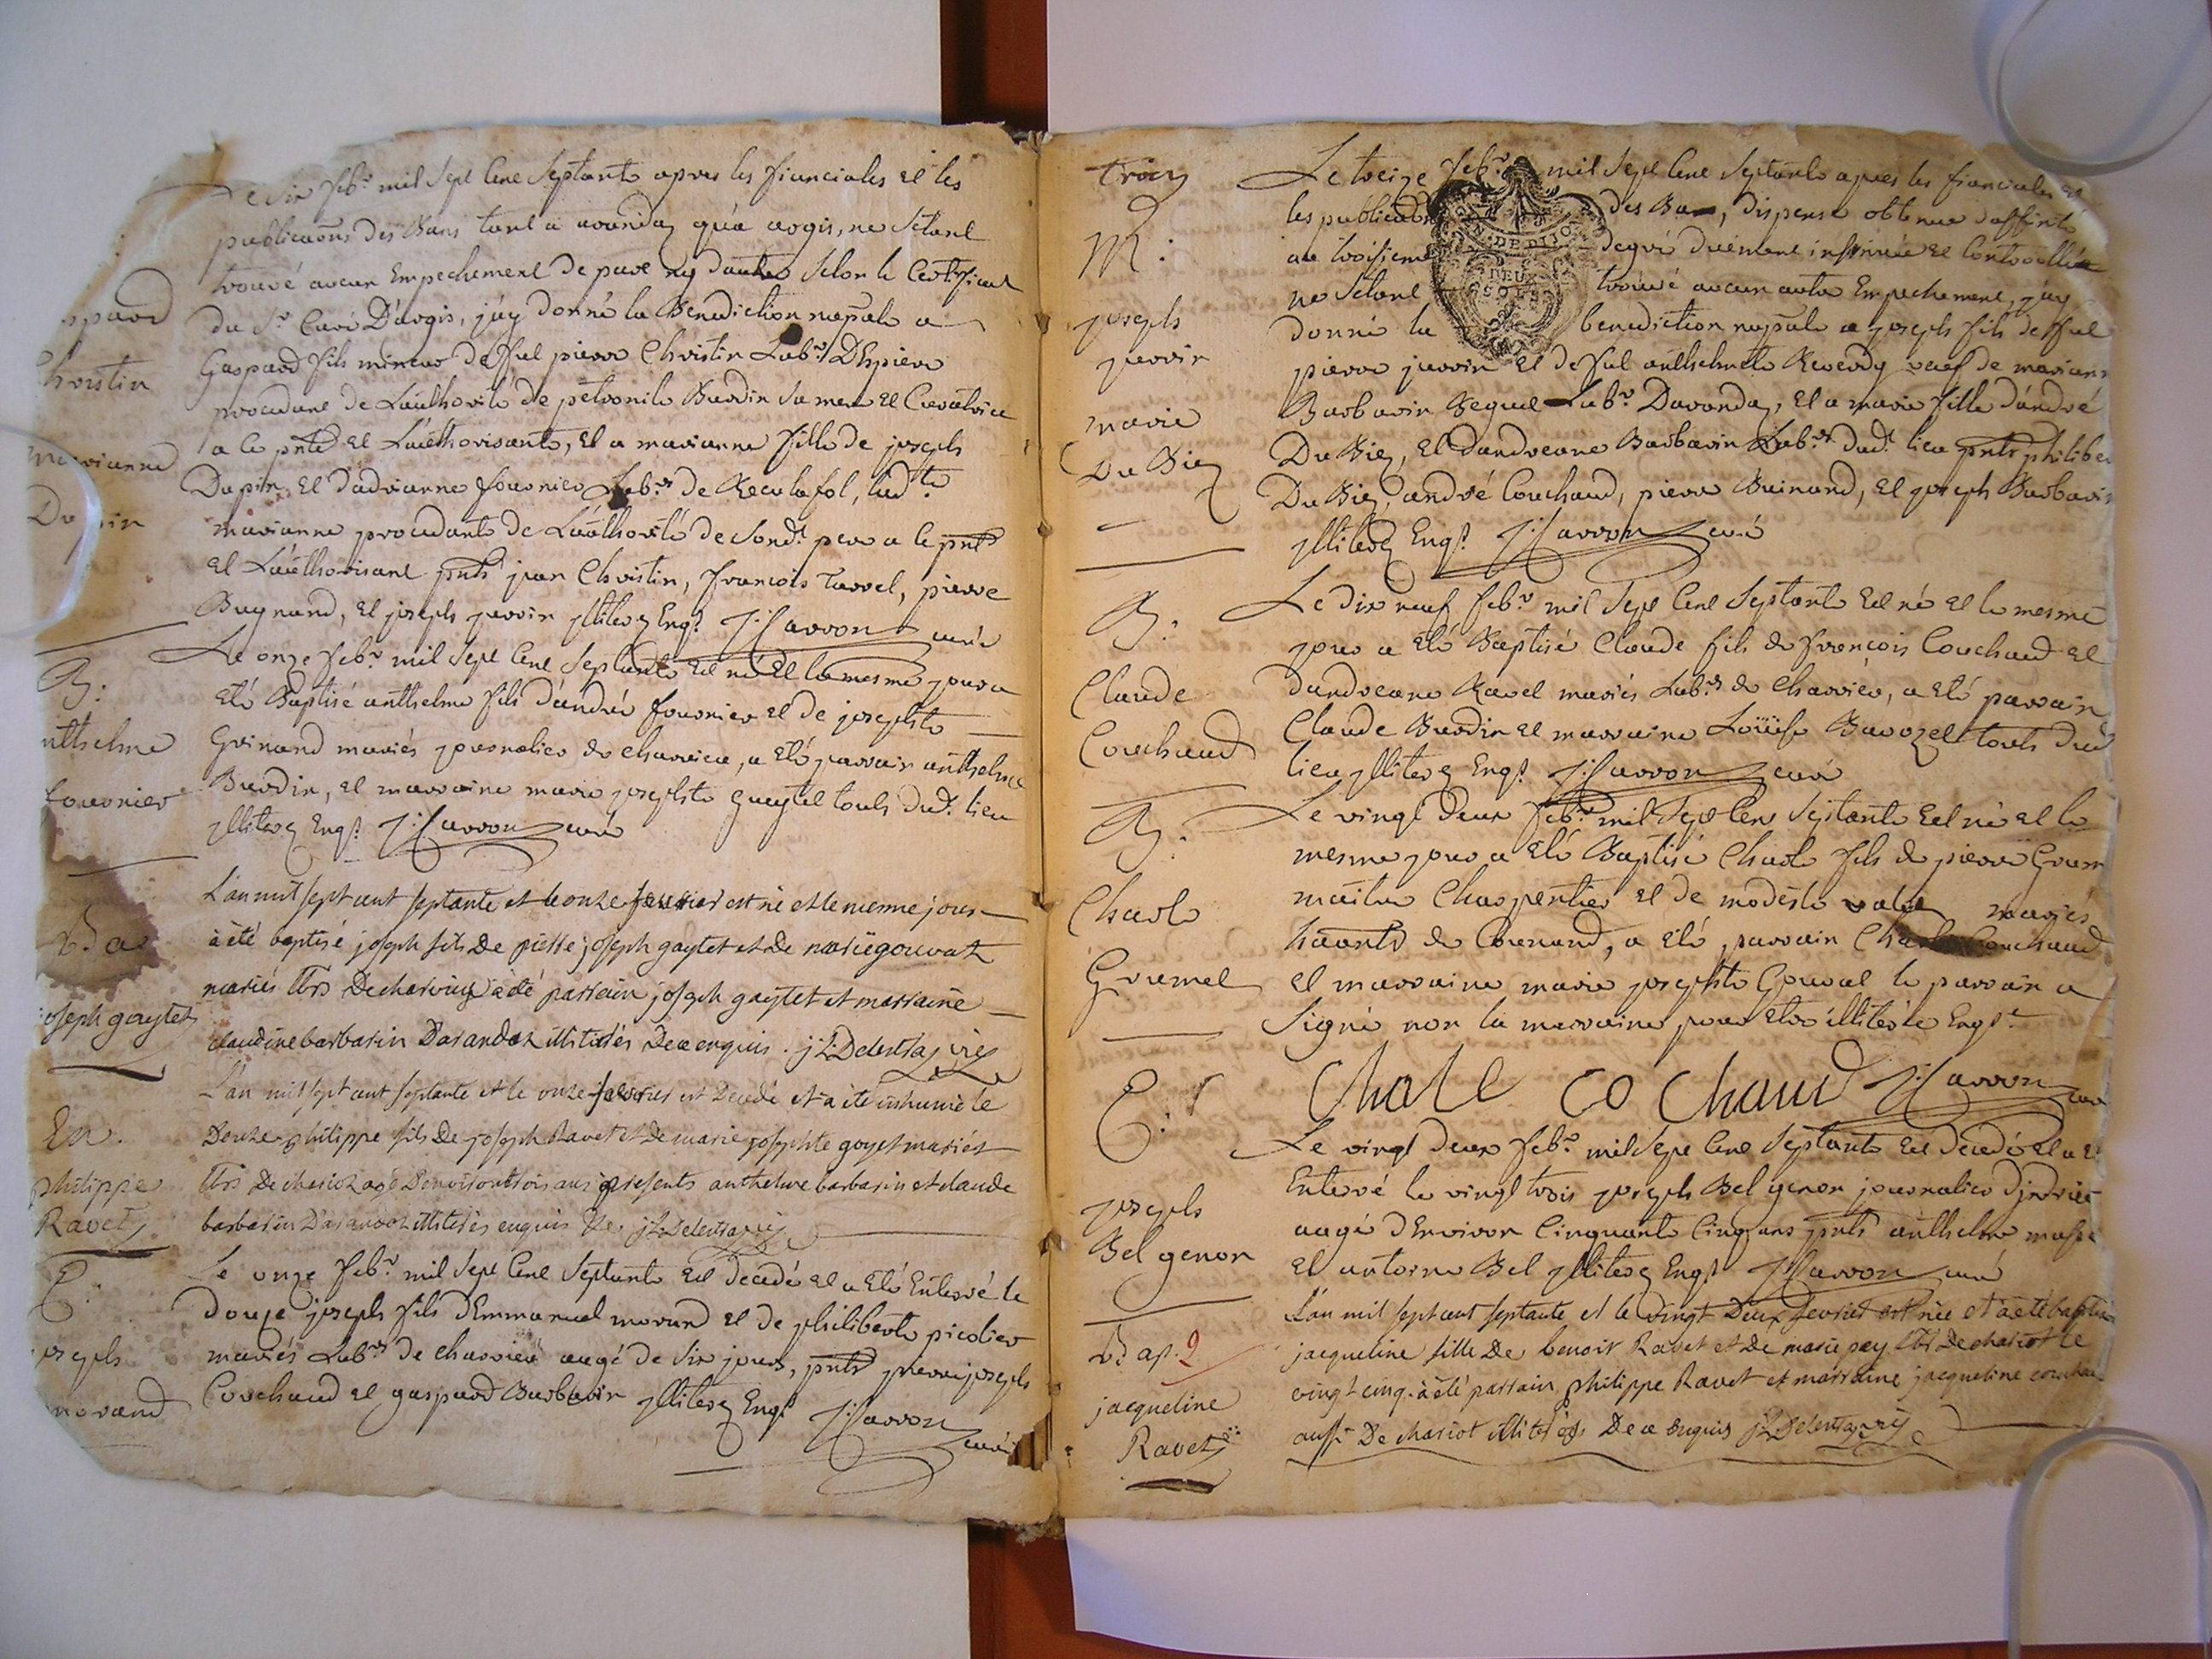 Le six feb.r mil sept cent septante apres les fianciales et les
publications des Bans tant a avandaz qu'a argis, ne s'etant
trouvé aucun Empechement de part ny dautre selon le Certificat
du S.r Curé D'argis, j'ay donné la Benediction nuptiale a
Gaspard fils mineur de fut pierre Christin Lab.r
procedant de L'authorité de petronile Burdin sa mere et Curatrice
a ce pnte et L'authorisante, et a marianne fille de joseph
Dupin, et d'adrianne fournier Lab.rs de Reculafol, lad.te
marianne procedante de L'authorité de sond.t pere a ce pnt
et L'authorisant pnts jean Christin, francois Tarvel, pierre
Buynand, et joseph juvrin illiterez Enq.s J: Carron curé
Gaspard
Christin
marianne
Dupin
Le onze feb.r mil sept cent septante est né et le mesme jour a
eté Baptisé anthelme fils d'andré fournier et de josephte
Guinand mariés journalier de charvieu, a eté parrain anthelme
Burdin, et marraine marie josephte Gueytet touts dud.t lieu
illiterez Enq.s J: Carron curé
B:
nthelme
fournier
L'an mil sept cent septante et le onze fevrier est né et le meme jour
à été baptisé joseph fils De pierre joseph gaytet et De marie gouvat
mariés lbrs De à été parrain joseph gaytet et marraine
claudine barbarin D'arandas illiterés De ce enquis. j: L: Delentaz vic
joseph gaytet
L'an mil sept cent septante et le onze fevrier est Decedé et a été inhumé le
Douze philippe fils De joseph Ravet et De marie josephte goyet mariés
lbrs De chariot agé D'environ trois ans presents anthelme barbarin et claude
barbarin D'arandoz illiterés enquis
En.
philippe
Ravet
Le onze feb.r mil sept cent septante est decedé et a eté Enterré le
douze joseph fils d'Emmanuel morand et de philiberte picolier
mariés Lab.rs de charvieu aagé de six jours, pnts pierre joseph
Couchaud et gaspard Barbarin illiterez Enq.s J: Carron curé
E:
joseph
morand
troiz
Le treize feb.r mil sept cent septante apres les fianciales et
les publications des Bans, dispense obtenue d'affinité
au troisieme degré duement insinuée et Controllée
ne s'etant trouvé aucun autre Empechement, j'ay
donné la benediction nuptiale a joseph fils de fut
pierre juvrin et de fut anthelmette Reverdy veuf de marianne
Barbarin Lab.r D'avandaz, et a marie fille d'andré
Du Biez, et d'andreane Barbarin Lab.rs dud.t lieu pnts philibert
Du Biez, andré Couchaud, pierre Buinand, et joseph Barbarin
illiterez Enq.s J: Carron curé
M:
joseph
juvrin
marie
Du Biez
Le dix neuf feb.r mil sept cent septante est né et le mesme
jour a eté Baptisé Claude fils de françois Couchaud et
d'andreane Ravet mariés Lab.rs de charvieu, a eté parrain
Claude Burdin et marraine Loüise Bavozet touts dud.t
lieu illiterez Enq.s J: Carron curé
B:
Claude
Couchaud
Le vingt deux feb.r mil sept cent septante est né et le
mesme jour a eté Baptisé Charle fils de pierre Grum
maitre Charpentier et de modeste mariés
hants de Conand, a eté parrain Charle Couchaud
et marraine marie josephte Gouvat le parrain a
signé non la marraine pour etre illiterée Enq.se
Charle Co Chaud J: Carron curé
B:
Charle
Grumel
Le vingt deux feb.r mil sept cent septante est decedé et a eté
Enterré le vingt trois joseph Bel genon journalier d'indrieu
aagé d'Environ Cinquante Cinq ans pnts anthelme
et antoine Bel illiterez Enq.s J: Carron curé
E:
joseph
Bel genon
L'an mil sept cent septante et le vingt Deux fevrier est née et a été baptisée
jacqueline fille De benoit Ravet et De marie pey lbrs De chariot le
vingt cinq. à été parrain philippe Ravet et marraine jacqueline
aussi De chariot illiterés De ce enquis
bap. 9
jacqueline
Ravet